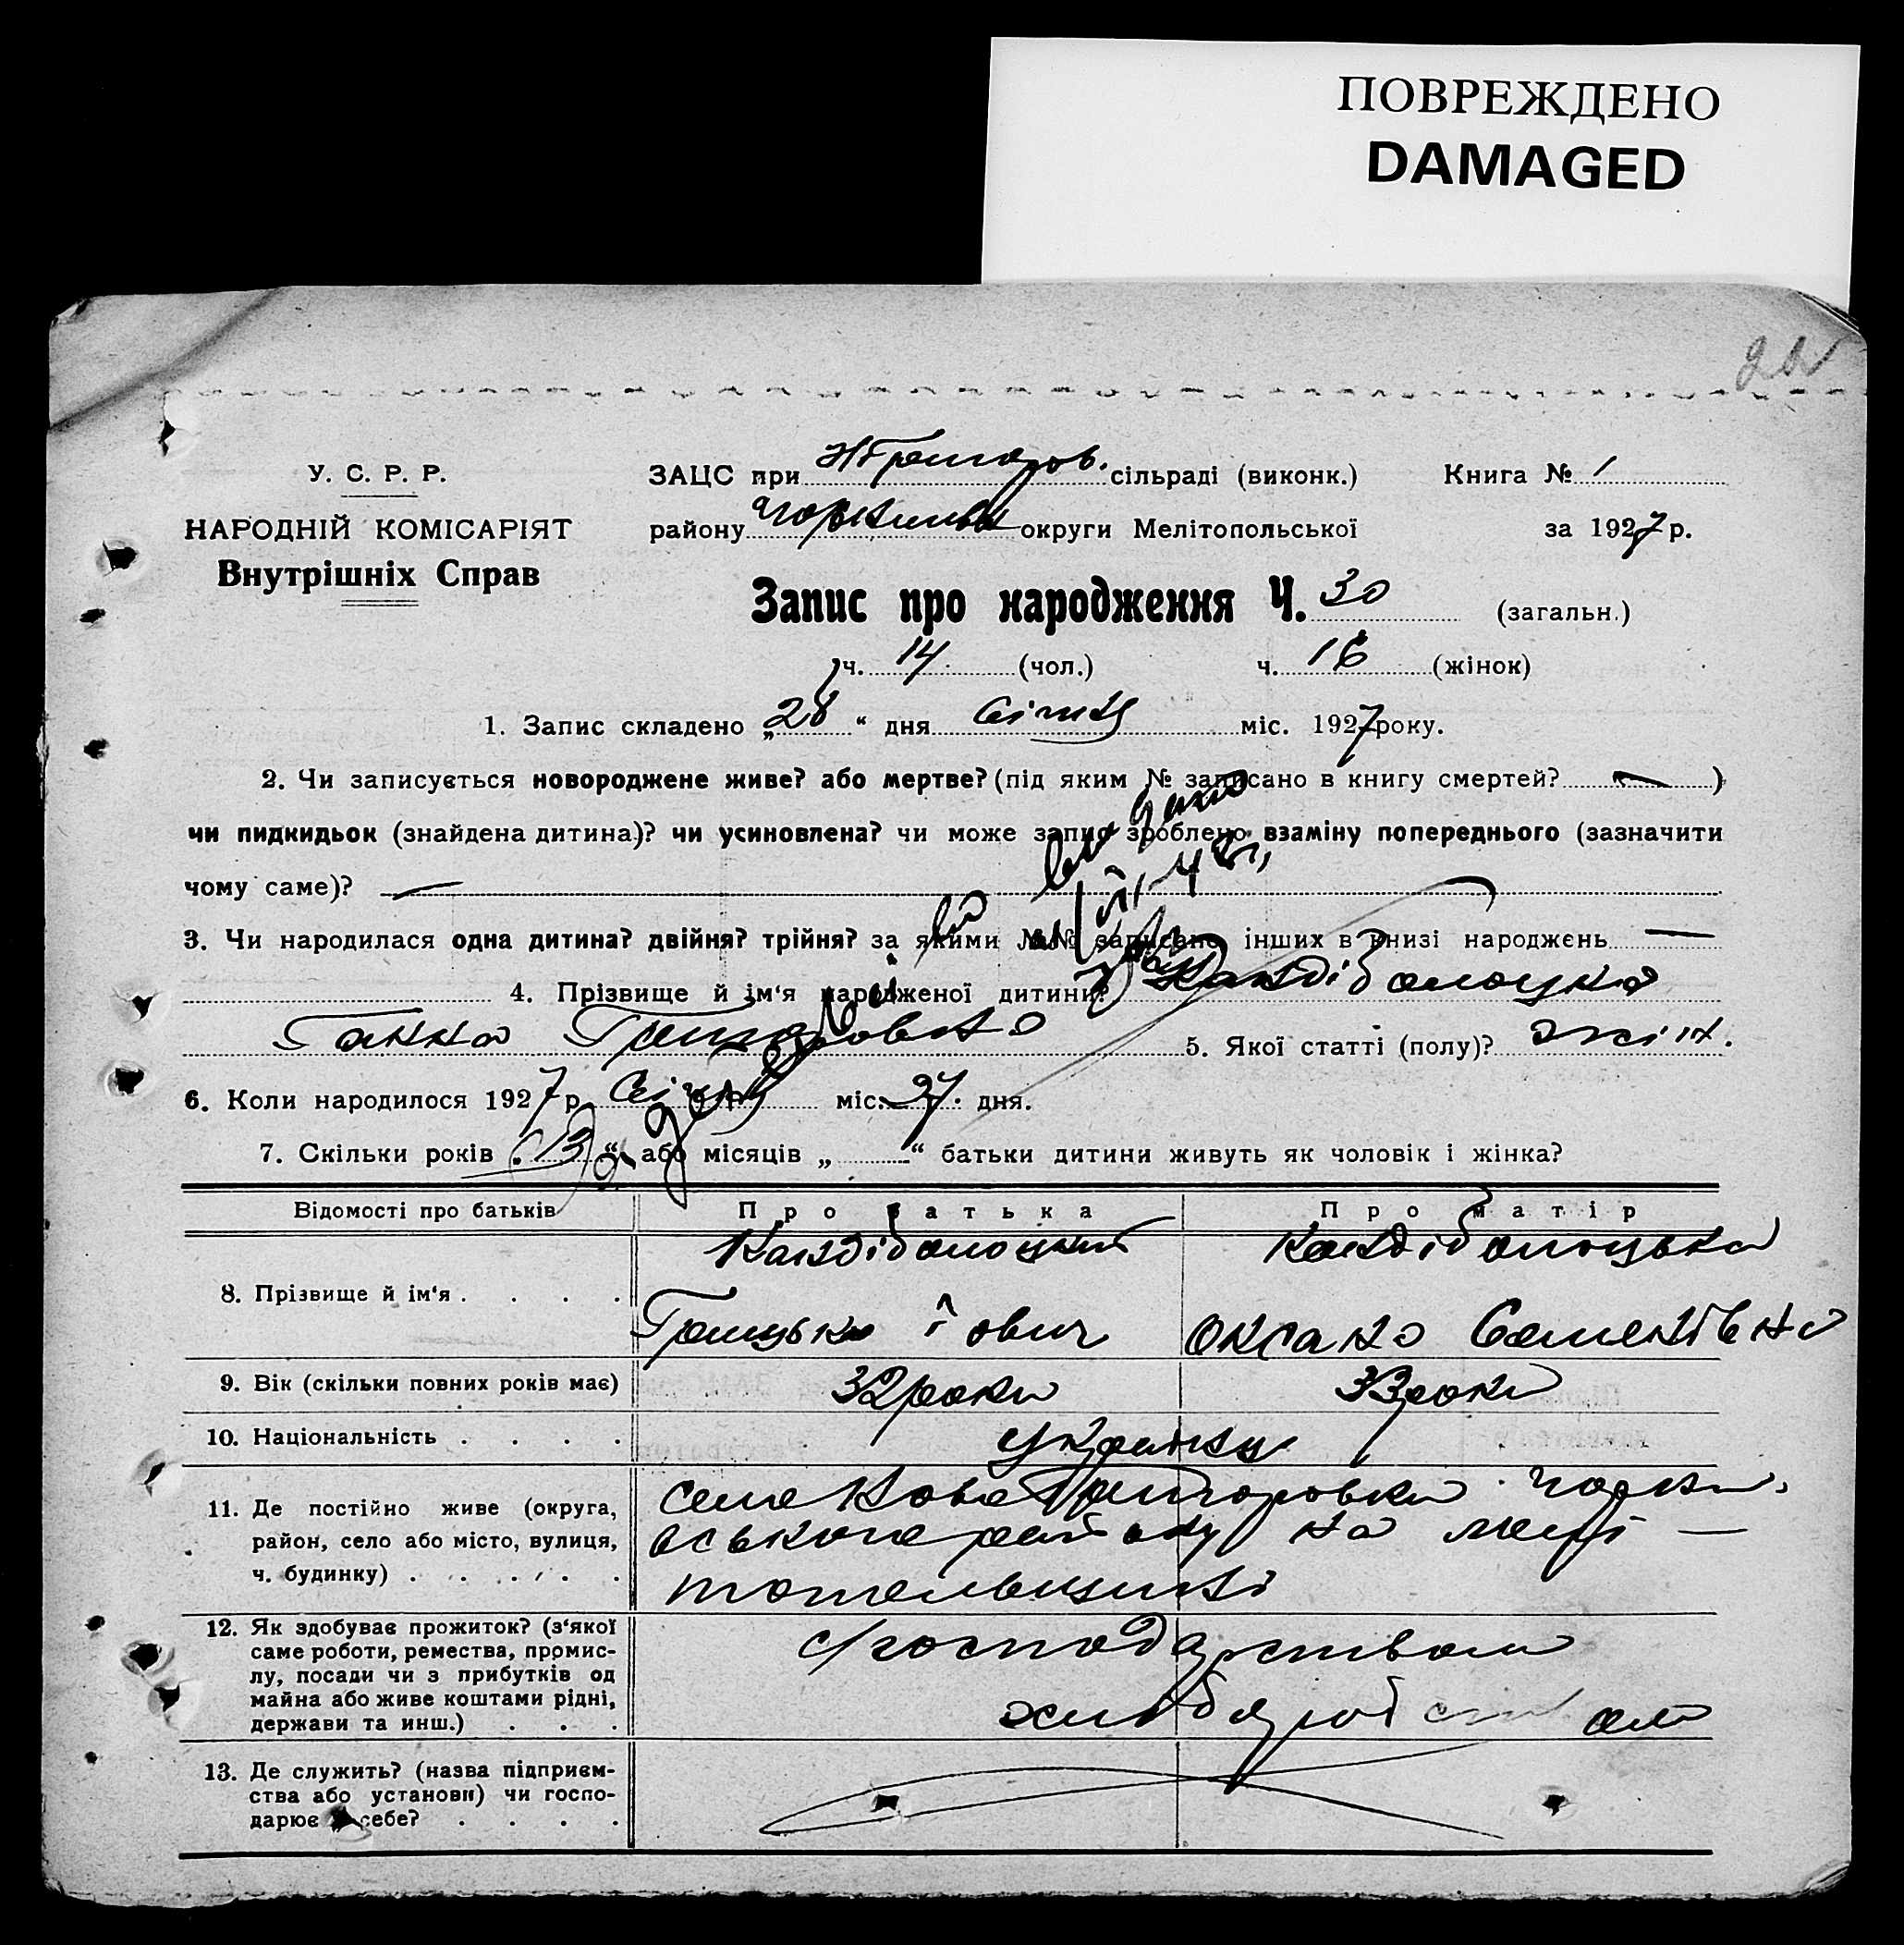 ПОВРЕЖДЕНО
DAMAGED
У. С. Р. Р.
НАРОДНІЙ КОМІСАРІЯТ
Внутрішніх Справ
ЗАЦС при Н Григоров. сільраді (виконк.) Книга № 1
району округи Мелітопольської за 1927 р.
Запис про народження Ч. 30 (загальн.)
ч. 14 (чол.) ч. 16 (жінок)
1. Запис складено „28“ дня Січня міс. 1927 року.
2. Чи записується новороджене живе? або мертве? (під яким № записано в книгу смертей? — )
чи пидкидьок (знайдена дитина)? чи усиновлена? чи може запис зроблено взаміну попереднього (зазначити
чому саме)? —
3. Чи народилася одна дитина? двійня? трійня? за якими №№ записано інших в книзі народжень —
4. Прізвище й ім‘я народженої дитини?
Ганна Григоровна 5. Якої статті (полу)? жін.
6. Коли народилося 1927 р. Січня міс. 27 дня.
7. Скільки років „13“ або місяців „ “ батьки дитини живуть як чоловік і жінка?
Відомості про батьків Про батька Про матір
8. Прізвище й ім‘я
Грицько Оксана Семенівна
9. Вік (скільки повних років має) 32 роки 33 роки
10. Національність Українці
11. Де постійно живе (округа,
район, село або місто, вулиця,
ч. будинку)
село Ново Григоровка Чорни-
ського району на Мелі—
топольщині
12. Як здобуває прожиток? (з‘якої
саме роботи, ремества, промис-
лу, посади чи з прибутків од
майна або живе коштами рідні,
держави та инш.)
господарством
13. Де служить? (назва підприєм-
ства або установи) чи госпо-
дарює себе?